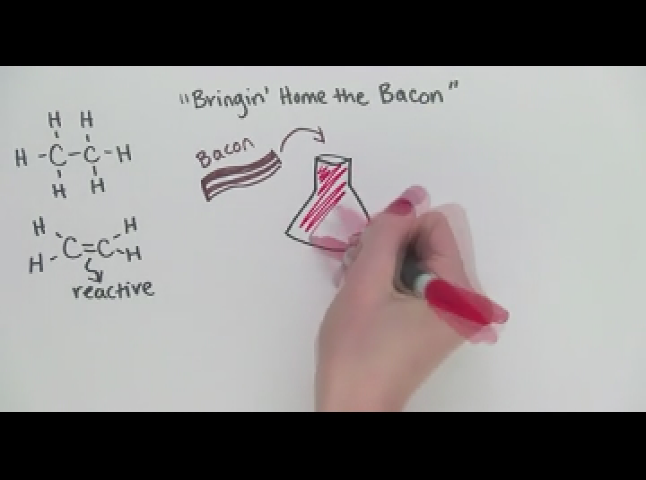 "Bringin' Home the Bacon"
Bacon
H H
H-C-C-H
H H
H H
C=C
H H
reactive